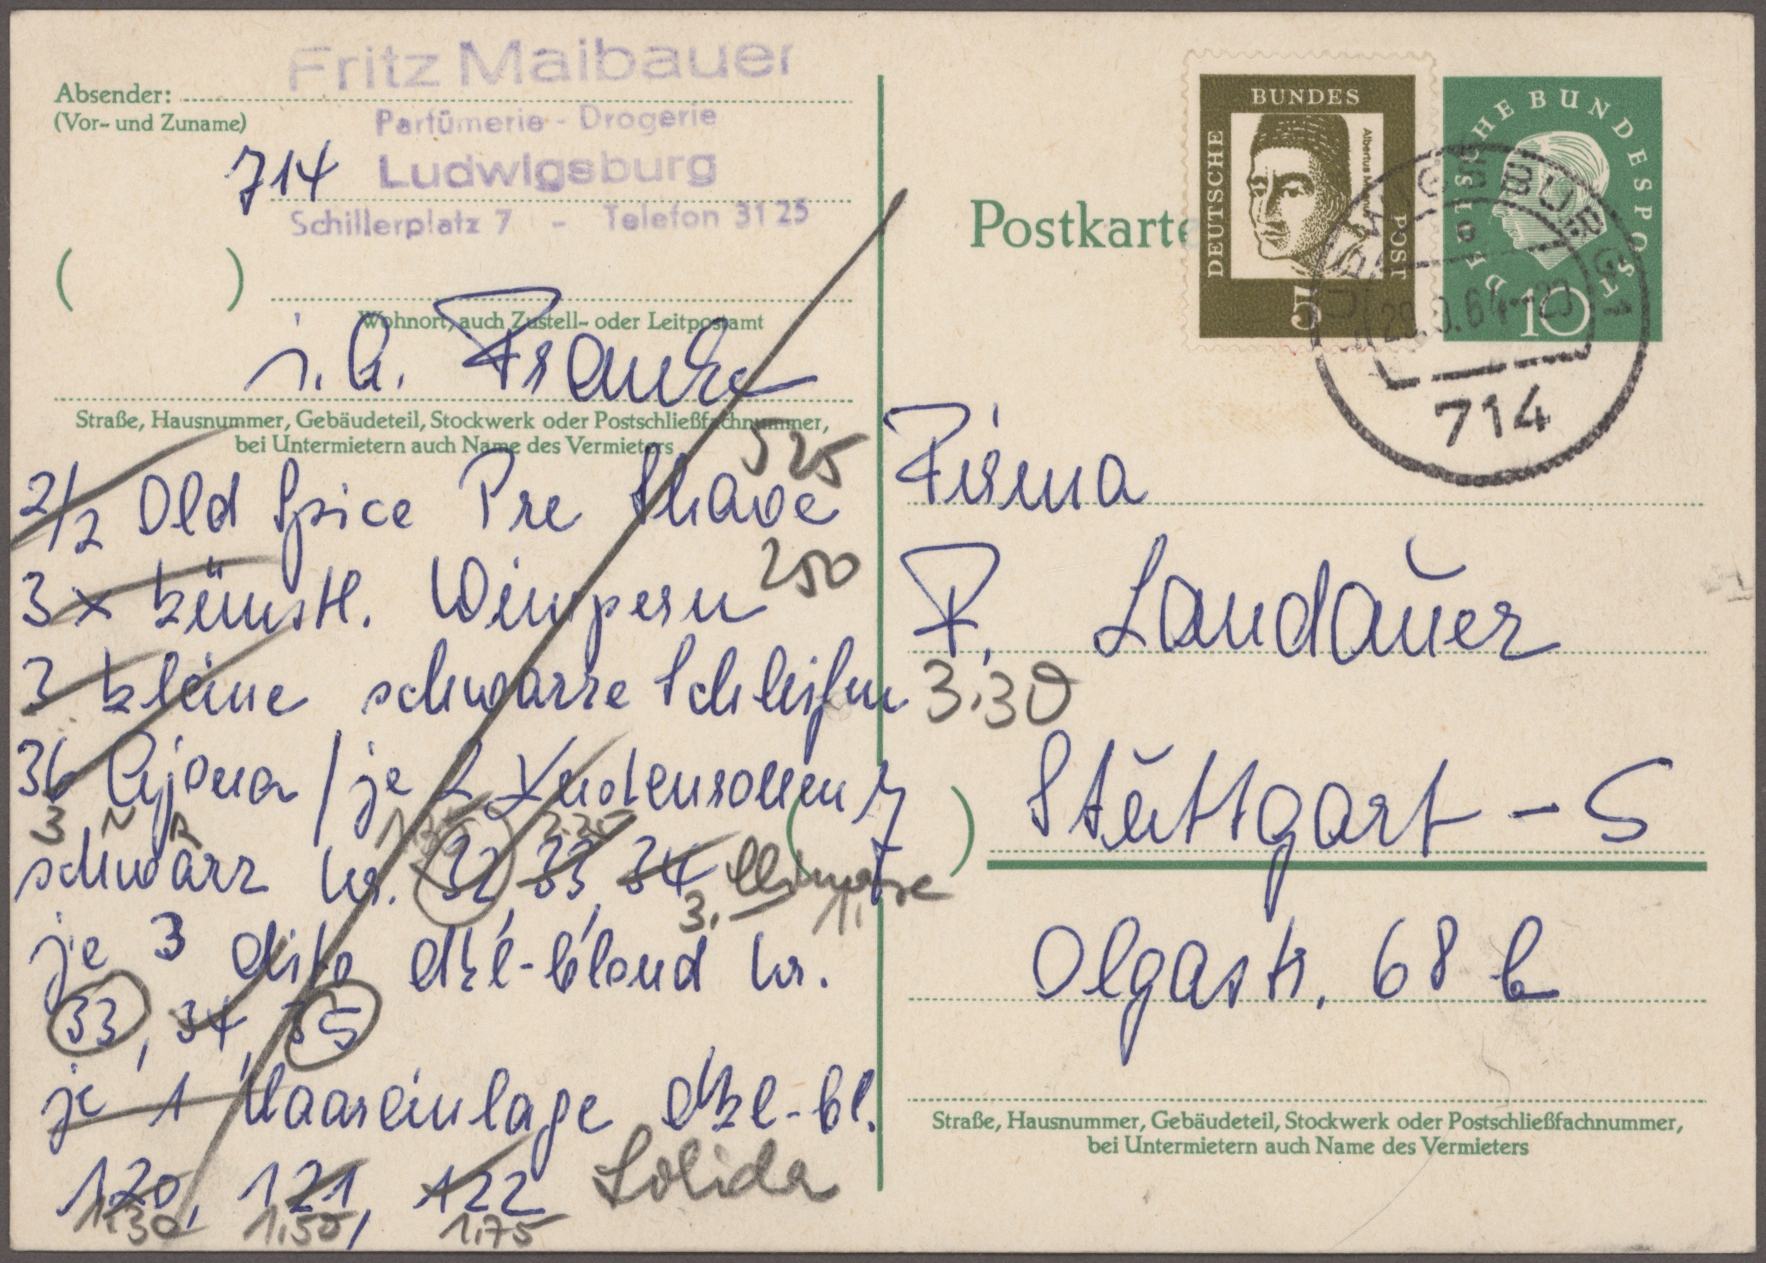 Fritz Maibauer
Absender:
(Vor- und Zuname)
Parfümerie - Drogerie
714
Ludwigsburg
Schillerplatz 7 - Telefon 31 25
( )
Wohnort, auch Zustell- oder Leitpostamt
Straße, Hausnummer, Gebäudeteil, Stockwerk oder Postschließfachnummer,
bei Untermietern auch Name des Vermieters
525
2/2 Old Spice Pre Shave
250
3 x künstl. Wimpern
3 kleine schwarze Schleifen 3.30
36 / je 2
3
schwarz Nr. 32, 33, 34
3. 11.
je 3 dito dkl-blond Nr.
33, 34, 35
je 1 Haareinlage dkl-bl.
120, 121, 122 Solida
1.30 1.50 1.75
Postkarte
DEUTSCHE BUNDESPOST
Albertus
5
DEUTSCHE BUNDESPOST
10
LUDWIGSBURG 1
64-20
714
Firma
F. Landauer
( ) Stuttgart - S
Olgastr. 68 b
Straße, Hausnummer, Gebäudeteil, Stockwerk oder Postschließfachnummer,
bei Untermietern auch Name des Vermieters